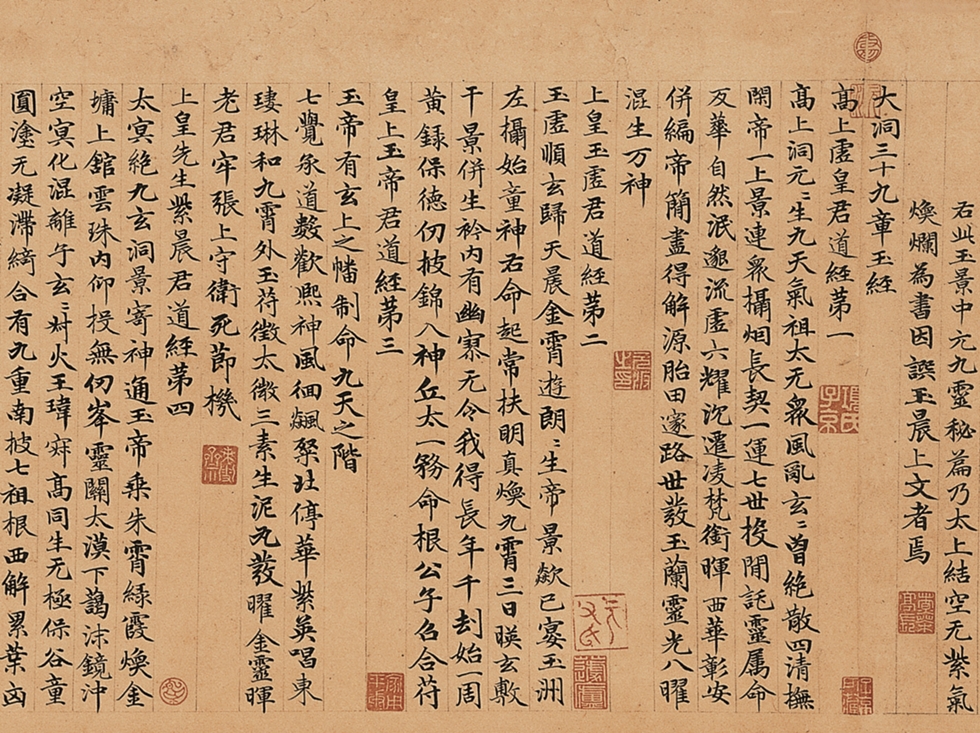 右此玉景中元九靈秘篇乃太上結空无紫氣
煥爛為書因譔玉晨上文者焉
大洞三十九章玉經
高上虛皇君道經苐一
高上洞元〻生九天氣祖太无衆風亂玄〻曽絶散四清撫
閑帝一上景連衆攝烟長契一運七世投閒託靈属命
友華自然泯邈流虛六耀沈遷凌梵銜暉西華彰安
併編帝簡盡得解源胎田邃路世發玉蘭靈光八曜
混生万神
上皇玉虛君道經苐二
玉虛順玄歸天晨金霄遊朗〻生帝景歘已宴玉洲
左攝始童神右命起常扶明真煥九霄三日暎玄敷
千景併生衿内有幽寥无令我得長年千刦始一周
黄録保德仞披錦八神丘太一務命根公子召合苻
皇上玉帝君道經苐三
玉帝有玄上之幡制命九天之階
七覺承道數歡熈神風徊飊粲壯停華紫英唱東
琳和九霄外玉苻徴太微三素生泥丸發曜金靈暉
老君牢張上守衛死莭機
上皇先生紫晨君道經苐四
太冥絶九玄洞景寄神通玉帝乗朱霄緑霞煥金
墉上舘雲珠内仰投無刃峯靈關太漠下藹沫鏡沖
空冥化混離子玄〻對火王瑋寂高同生无極保谷童
圓塗无凝滯綺合有九重南披七祖根西解累葉凶